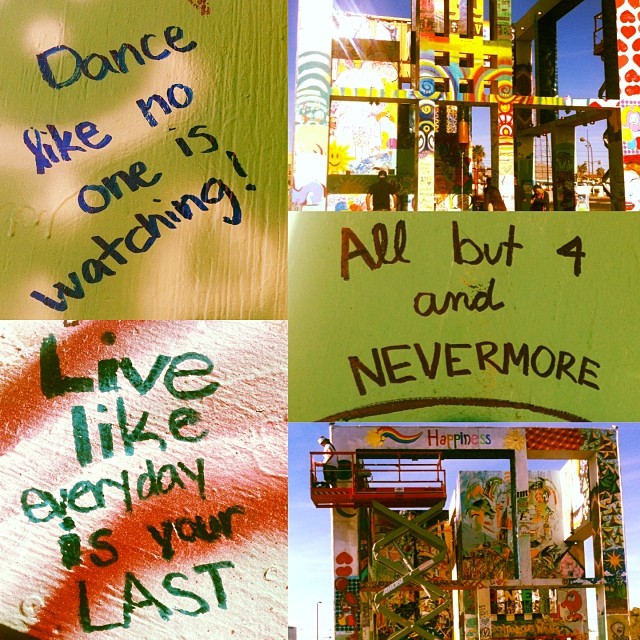 Dance
like no
one is
watching!
All but 4
and
NEVERMORE
Live
like
everyday
is your
LAST
Happiness